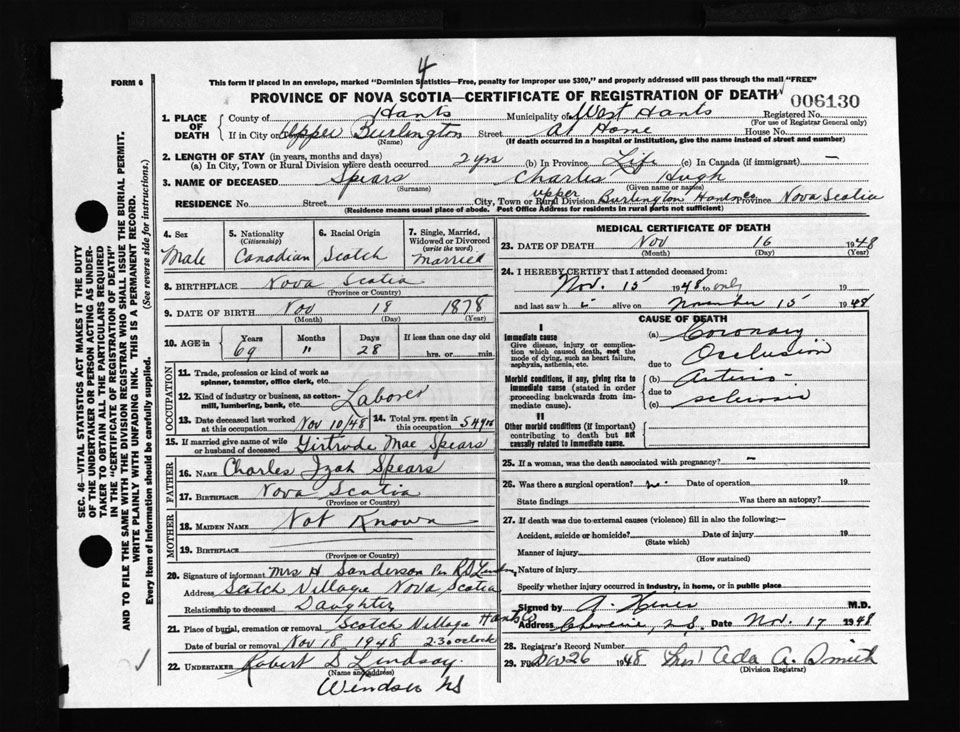 4
FORM 6
This form if placed in an envelope, marked "Dominion Statistics—Free, penalty for improper use $300," and properly addressed will pass through the mail "FREE"
PROVINCE OF NOVA SCOTIA—CERTIFICATE OF REGISTRATION OF DEATH
006130
1. PLACE OF DEATH
County of Hants Municipality of West Hants Registered No.
(For use of Registrar General only)
If in City or Upper Burlington Street At Home House No.
(Name) (If death occurred in a hospital or institution, give the name instead of street and number)
2. LENGTH OF STAY (in years, months and days)
(a) In City, Town or Rural Division where death occurred 2 yrs (b) In Province Life (c) In Canada (if immigrant) —
3. NAME OF DECEASED Spears Charles Hugh
(Surname) (Given name or names)
RESIDENCE No. Street City, Town or Rural Division Upper Burlington Hants Co Province Nova Scotia
(Residence means usual place of abode. Post Office Address for residents in rural parts not sufficient)
4. Sex Male
5. Nationality (Citizenship) Canadian
6. Racial Origin Scotch
7. Single, Married, Widowed or Divorced (write the word) Married
8. BIRTHPLACE Nova Scotia
(Province or Country)
9. DATE OF BIRTH Nov 18 1878
(Month) (Day) (Year)
10. AGE in Years 69 Months " Days 28 If less than one day old hrs. or min.
OCCUPATION
11. Trade, profession or kind of work as spinner, teamster, office clerk, etc.
12. Kind of industry or business, as cotton-mill, lumbering, bank, etc. Laborer
13. Date deceased last worked at this occupation Nov 10/48
14. Total yrs. spent in this occupation 54 yrs
15. If married give name of wife or husband of deceased Girtrude Mae Spears
FATHER
16. NAME Charles Izah Spears
17. BIRTHPLACE Nova Scotia
(Province or Country)
MOTHER
18. MAIDEN NAME Not Known
19. BIRTHPLACE
(Province or Country)
20. Signature of informant Mrs H Sanderson Per R.D. Lindsay
Address Scotch Village Nova Scotia
Relationship to deceased Daughter
21. Place of burial, cremation or removal Scotch Village Hants Co
Date of burial or removal Nov 18 1948 2.30 oclock
22. UNDERTAKER Robert D Lindsay.
(Name and address)
Windsor NS
MEDICAL CERTIFICATE OF DEATH
23. DATE OF DEATH Nov 16 1948
(Month) (Day) (Year)
24. I HEREBY CERTIFY that I attended deceased from:
Nov. 15 1948 to only 19
and last saw h i alive on November 15 1948
CAUSE OF DEATH
I
Immediate cause
Give disease, injury or complication which caused death, not the mode of dying, such as heart failure, asphyxia, asthenia, etc.
(a) Coronary
Occlusion
due to
Morbid conditions, if any, giving rise to immediate cause (stated in order proceeding backwards from immediate cause).
(b) Arterio-
due to
(c) sclerosis
II
Other morbid conditions (if important) contributing to death but not causally related to immediate cause.
25. If a woman, was the death associated with pregnancy? —
26. Was there a surgical operation? no. Date of operation 19
State findings Was there an autopsy?
27. If death was due to external causes (violence) fill in also the following:—
Accident, suicide or homicide? Date of injury 19
(State which)
Manner of injury
(How sustained)
Nature of injury
Specify whether injury occurred in industry, in home, or in public place
Signed by A. M.D.
Address N.S. Date Nov. 17 1948
28. Registrar's Record Number
29. Filed Nov 26 1948 Mrs Ada A. Smith
(Division Registrar)
SEC. 46—VITAL STATISTICS ACT MAKES IT THE DUTY
OF THE UNDERTAKER OR PERSON ACTING AS UNDER-
TAKER TO OBTAIN ALL THE PARTICULARS REQUIRED
IN THE "CERTIFICATE OF REGISTRATION OF DEATH"
AND TO FILE THE SAME WITH THE DIVISION REGISTRAR WHO SHALL ISSUE THE BURIAL PERMIT.
WRITE PLAINLY WITH UNFADING INK. THIS IS A PERMANENT RECORD.
Every item of Information should be carefully supplied. (See reverse side for instructions.)